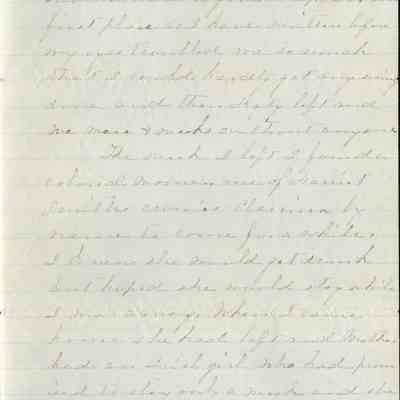 first place as I have written before
my eyes troubled me so much
that I could hardly get anything
done and then Mary left and
we were 3 weeks without anyone
The week I left I found a
colored woman one of
by
name to come for a while.
I knew she would get drunk
but hoped she would stay while
I was away. When I came
home she had left and Mother
had an Irish girl who had prom
ised to stay only a week and she